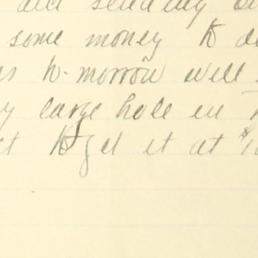 did sending
some money to d
to-morrow will
y large hole in
ct to get it at $1